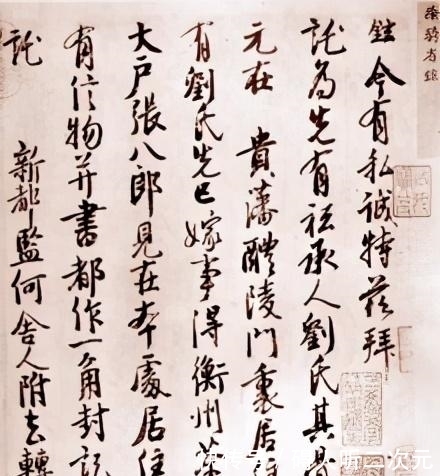 今有私誠特茲拜
託為先有祗承人劉氏其
元在 貴藩醴陵門裏居
有劉氏先已嫁事得衡州茶
大戶張八郎見在本處居住
有信物并書都作一角封記
託 新都監何舍人附去轉
听二次元